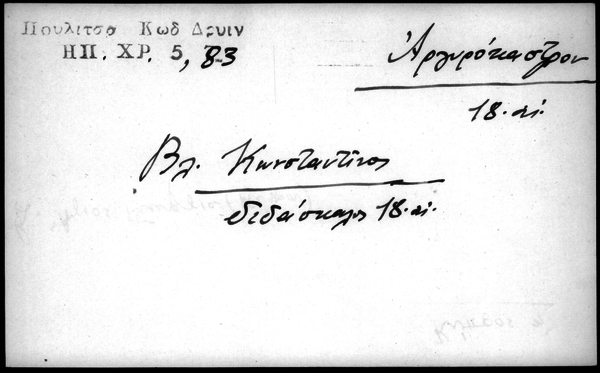 Πουλιτσα Κωδ Δρυιν
ΗΠ. ΧΡ. 5, 83
Ἀργυρόκαστρον
18. αἰ.
Βλ. Κωνσταντῖνος
διδάσκαλος 18. αἰ.